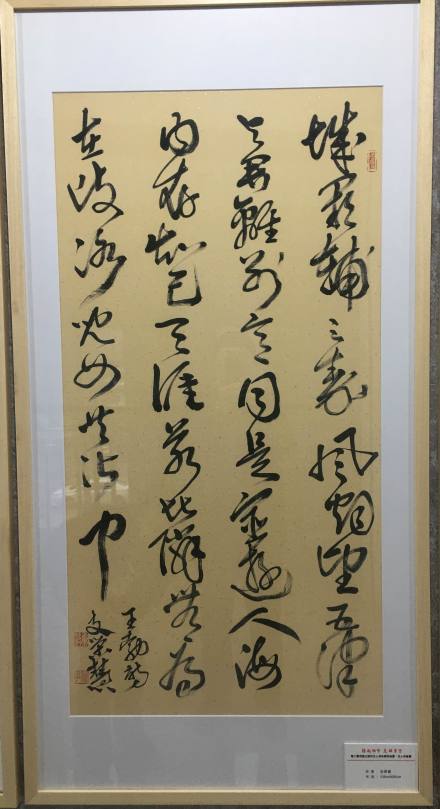 城闕輔三秦風烟望五津
与君離别意同是宦遊人海
内存知己天涯若比隣無為
在歧路兒女共沾巾
王勃詩